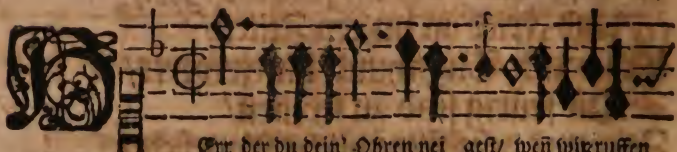 HErr der du dein' Ohren nei gest/ weñ wir ruffen